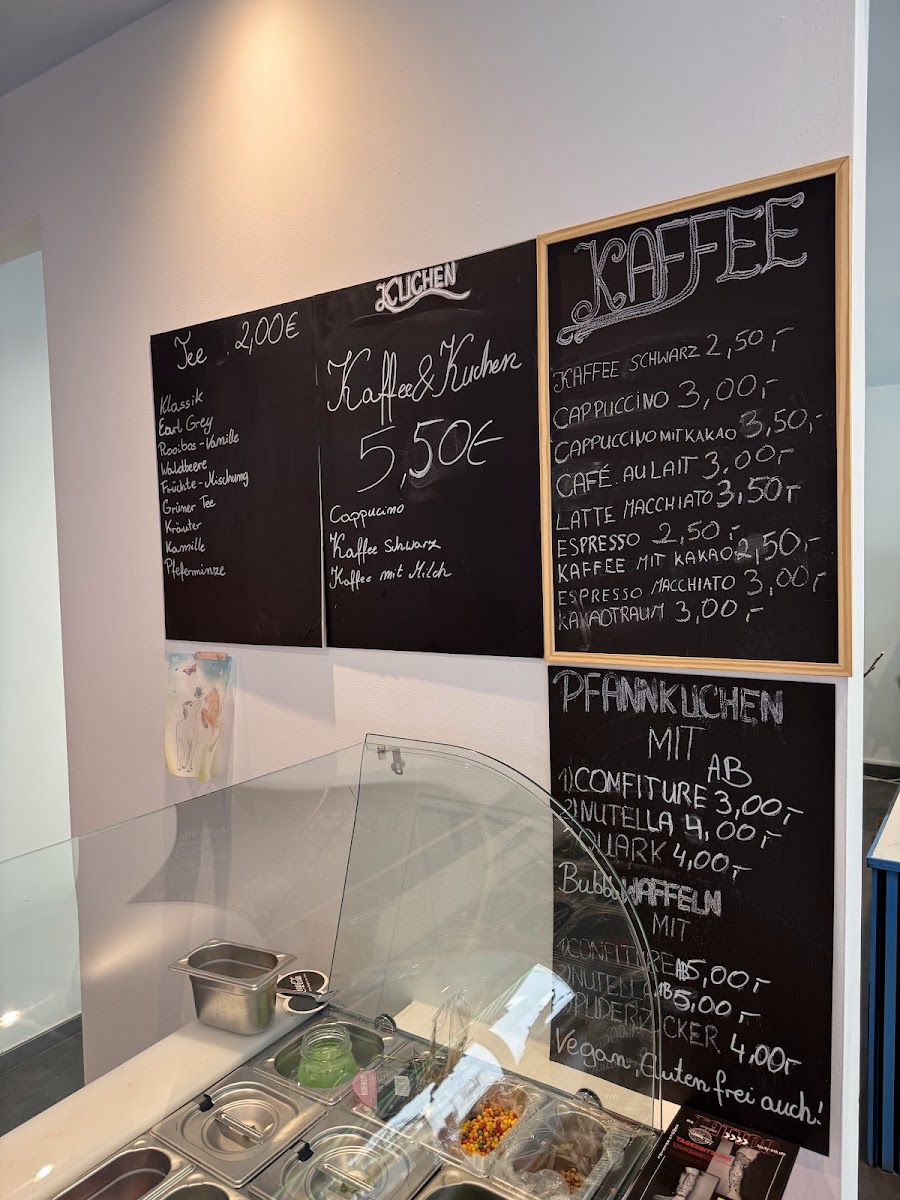 Tee 2,00€
Klassik
Earl Grey
Rooibos-Vanille
Waldbeere
Früchte-Mischung
Grüner Tee
Kräuter
Kamille
Pfefferminze
KUCHEN
Kaffee&Kuchen
5,50€
Cappucino
Kaffee Schwarz
Kaffee mit Milch
KAFFEE
KAFFEE SCHWARZ 2,50,-
CAPPUCCINO 3,00,-
CAPPUCCINO MIT KAKAO 3,50,-
CAFÉ AU LAIT 3,00,-
LATTE MACCHIATO 3,50,-
ESPRESSO 2,50,-
KAFFEE MIT KAKAO 2,50,-
ESPRESSO MACCHIATO 3,00,-
KAKAOTRAUM 3,00,-
PFANNKUCHEN
MIT
AB
1) CONFITURE 3,00,-
2) NUTELLA 4,00,-
3) QUARK 4,00,-
Bubble WAFFELN
MIT
1) CONFITURE AB 5,00,-
2) NUTELLA AB 5,00,-
PUDERZUCKER 4,00,-
Vegan, Glutenfrei auch!